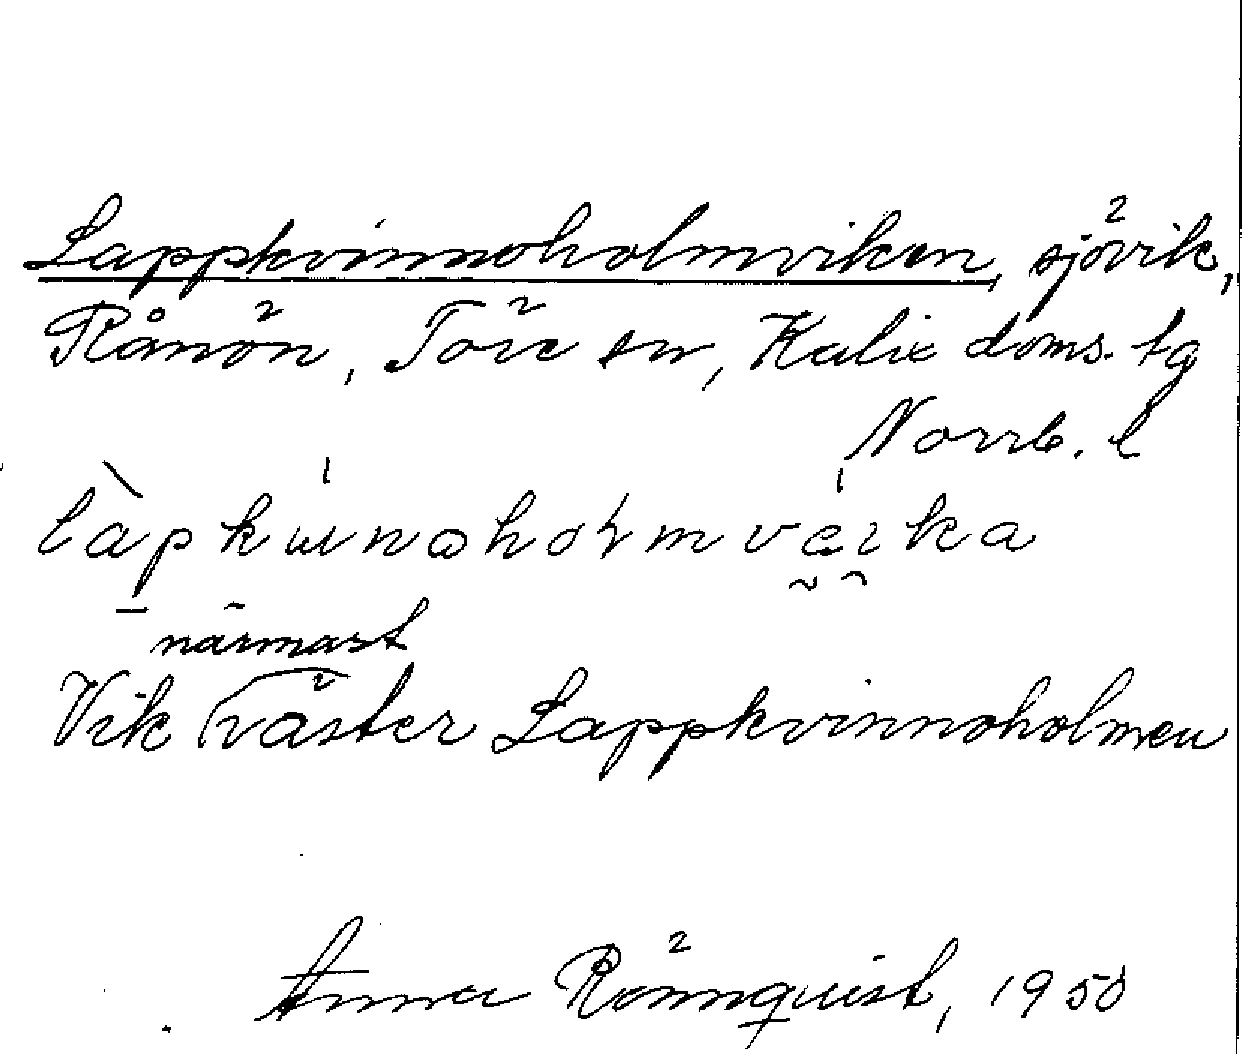 Lappkvinnoholmviken, sjövik,
Rånön, Töre sn, Kalix doms. tg
Norrb. l
närmast
Vik väster Lappkvinnoholmen
Anna Rönnquist, 1950